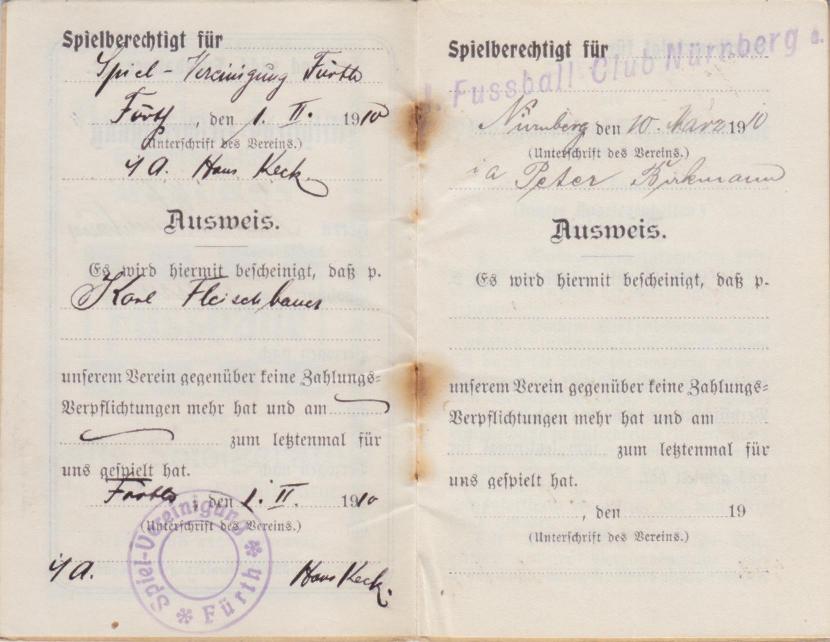 Spielberechtigt für
Spiel-Vereinigung Fürth
Fürth, den 1. II. 1910
(Unterschrift des Vereins.)
i/A. Hans Keck
Ausweis.
Es wird hiermit bescheinigt, daß p.
Karl Fleischbauer
unserem Verein gegenüber keine Zahlungs-
Verpflichtungen mehr hat und am
zum letztenmal für
uns gespielt hat.
Fürth, den 1. II. 1910
(Unterschrift des Vereins.)
i/A. Hans Keck.
Spiel-Vereinigung Fürth
Spielberechtigt für
I. Fussball Club Nürnberg e.
Nürnberg den 10. März 1910
(Unterschrift des Vereins.)
i a Peter Birkmann
Ausweis.
Es wird hiermit bescheinigt, daß p.
unserem Verein gegenüber keine Zahlungs-
Verpflichtungen mehr hat und am
zum letztenmal für
uns gespielt hat.
, den 19
(Unterschrift des Vereins.)